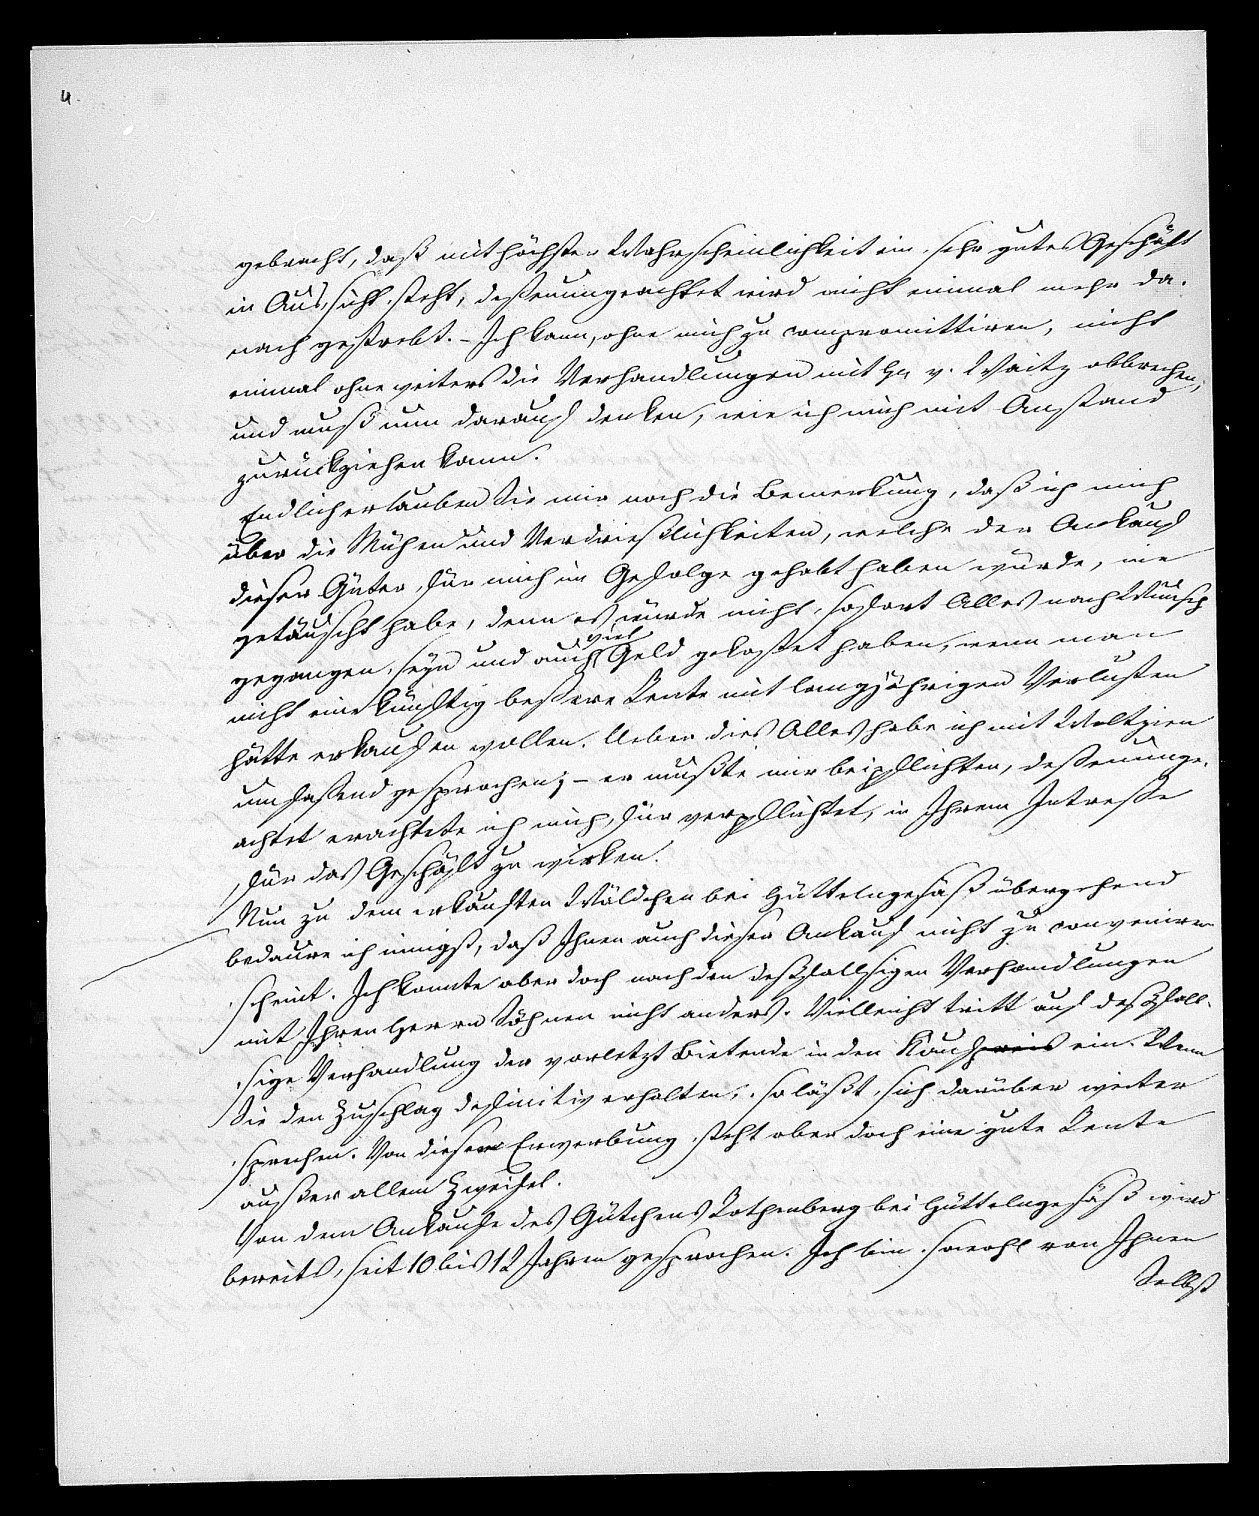 4.
gebracht, daß mit höchster Wahrscheinlichkeit ein sehr gutes Geschäft
in Aussicht steht, deßenungeachtet wird nicht einmal mehr da-
nach gestrebt. – Ich kann, ohne mich zu compromittiren, nicht
einmal ohne weiters die Verhandlungen mit Hr v. Waitz abbrechen,
und muß nun darauf denken, wie ich mich mit Anstand
zurückziehen kann.
Endlich erlauben Sie mir noch die Bemerkung, daß ich mich
über die Mühen und Verdrießlichkeiten, welche der Ankauf
dieser Güter für mich im Gefolge gehabt haben würde, nie
getäuscht habe, denn es würde nicht sofort Alles nach Wunsch
gegangen seyn und auch viel Geld gekostet haben, wenn man
nicht eine künftig beßere Rente mit langjährigen Verlusten
hätte erkaufen wollen. Ueber dies Alles habe ich mit Woltzien
umfaßend gesprochen; – er mußte mir beipflichten, deßenunge-
achtet erachtete ich mich für verpflichtet, in Ihrem Intreße
für das Geschäft zu wirken.
Nun zu dem erkauften Wäldchen bei Hüttelngesäß übergehend
bedaure ich innigst, daß Ihnen auch dieser Ankauf nicht zu conveniren
scheint. Ich konnte aber doch nach den deßfallsigen Verhandlungen
mit Ihren Herrn Söhnen nicht anders. Vielleicht tritt auf deßfall-
sige Verhandlung der vorletzt Bietende in den Kaufpreis ein. Wenn
Sie den Zuschlag definitiv erhalten, so läßt sich darüber weiter
sprechen. Von dieser Erwerbung steht aber doch eine gute Rente
außer allem Zweifel.
Von dem Ankaufe des Gütchens Rothenberg bei Hüttelngesäß wird
bereits seit 10 bis 12 Jahren gesprochen. Ich bin sowohl von Ihnen
Selbst